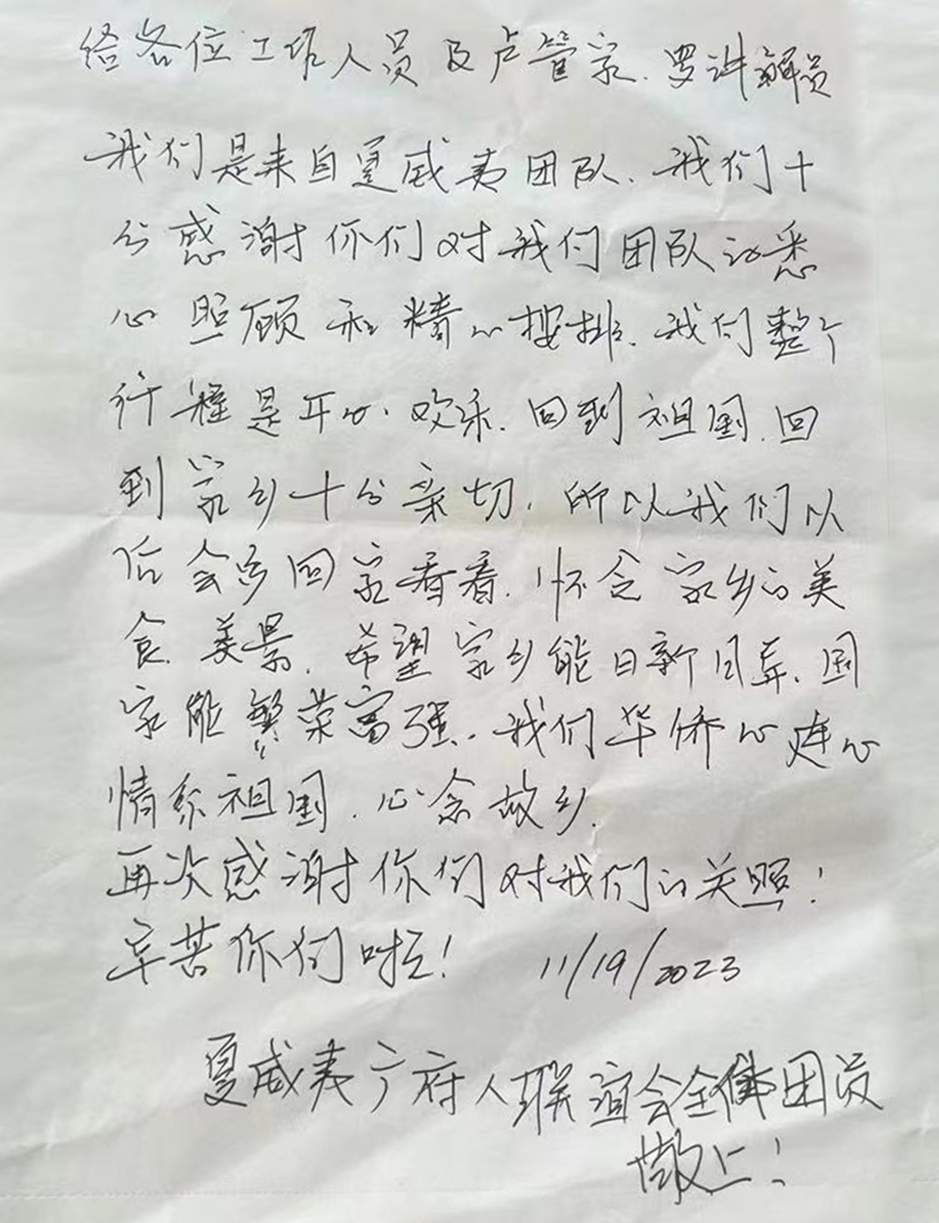 给各位工作人员及卢管家、罗讲解员
我们是来自夏威夷团队、我们十
分感谢你们对我们团队的悉
心照顾和精心按排、我们整个
行程是开心、欢乐、回到祖国、回
到家乡十分亲切、所以我们以
后会多回家看看、怀念家乡的美
食、美景、希望家乡能日新月异、国
家能繁荣富强、我们华侨心连心
情系祖国、心念故乡、
再次感谢你们对我们的关照！
辛苦你们啦！ 11/19/2023
夏威夷广府人联谊会全体团员
敬上！